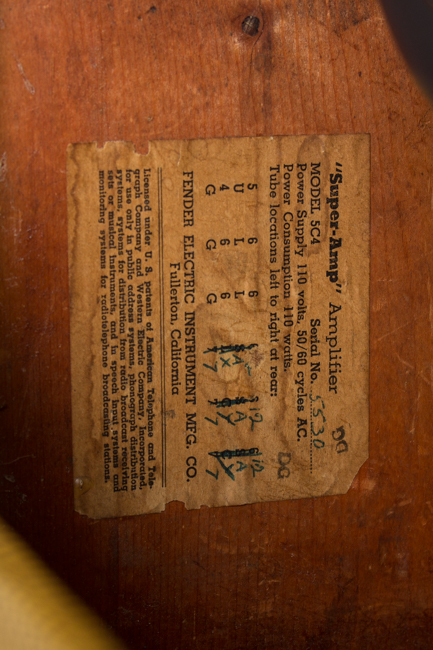 "Super-Amp" Amplifier DG
MODEL 5C4 Serial No. 5530
Power Supply 110 volts, 50/60 cycles AC.
Power Consumption 110 watts. DG
Tube locations left to right at rear:
5 6 6 12 12 12
U L L A A A
4 6 6
G G G 7 7 7
FENDER ELECTRIC INSTRUMENT MFG. CO.
Fullerton, California
Licensed under U. S. patents of American Telephone and Tele-
graph Company and Western Electric Company, Incorporated,
for use only in public address systems, phonograph distribution
systems, systems for distribution from radio broadcast receiving
sets or musical instruments, and in speech input systems and
monitoring systems for radiotelephone broadcasting stations.